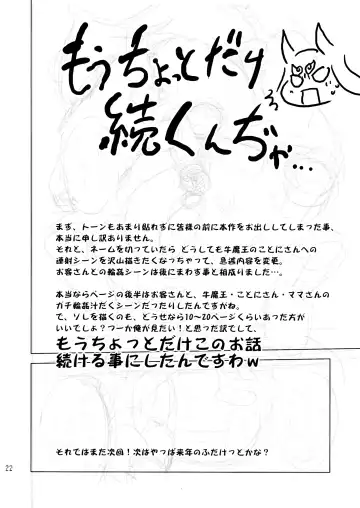 もうちょっとだけ
続くんぢゃ…
まず、トーンもあまり貼れずに皆様の前に本作をお出ししてしまった事、
本当に申し訳ありません。
それと、ネームを切っていたら どうしても牛魔王のことにさんへの
連射シーンを沢山描きたくなっちゃって、急遽内容を変更。
お客さんとの輪姦シーンは後にまわす事と相成りました…。
本当ならページの後半はお客さんと、牛魔王・ことにさん・ママさんの
ガチ輪姦汁だくシーンだったりしたんですがね。
で、ソレを描くのも、どうせなら10～20ページくらいあった方が
いいでしょ?つーか俺が見たい!と思った訳でして、
もうちょっとだけこのお話
続ける事にしたんですわw
それではまた次回!次はやっぱ来年のふたけっとかな?
22